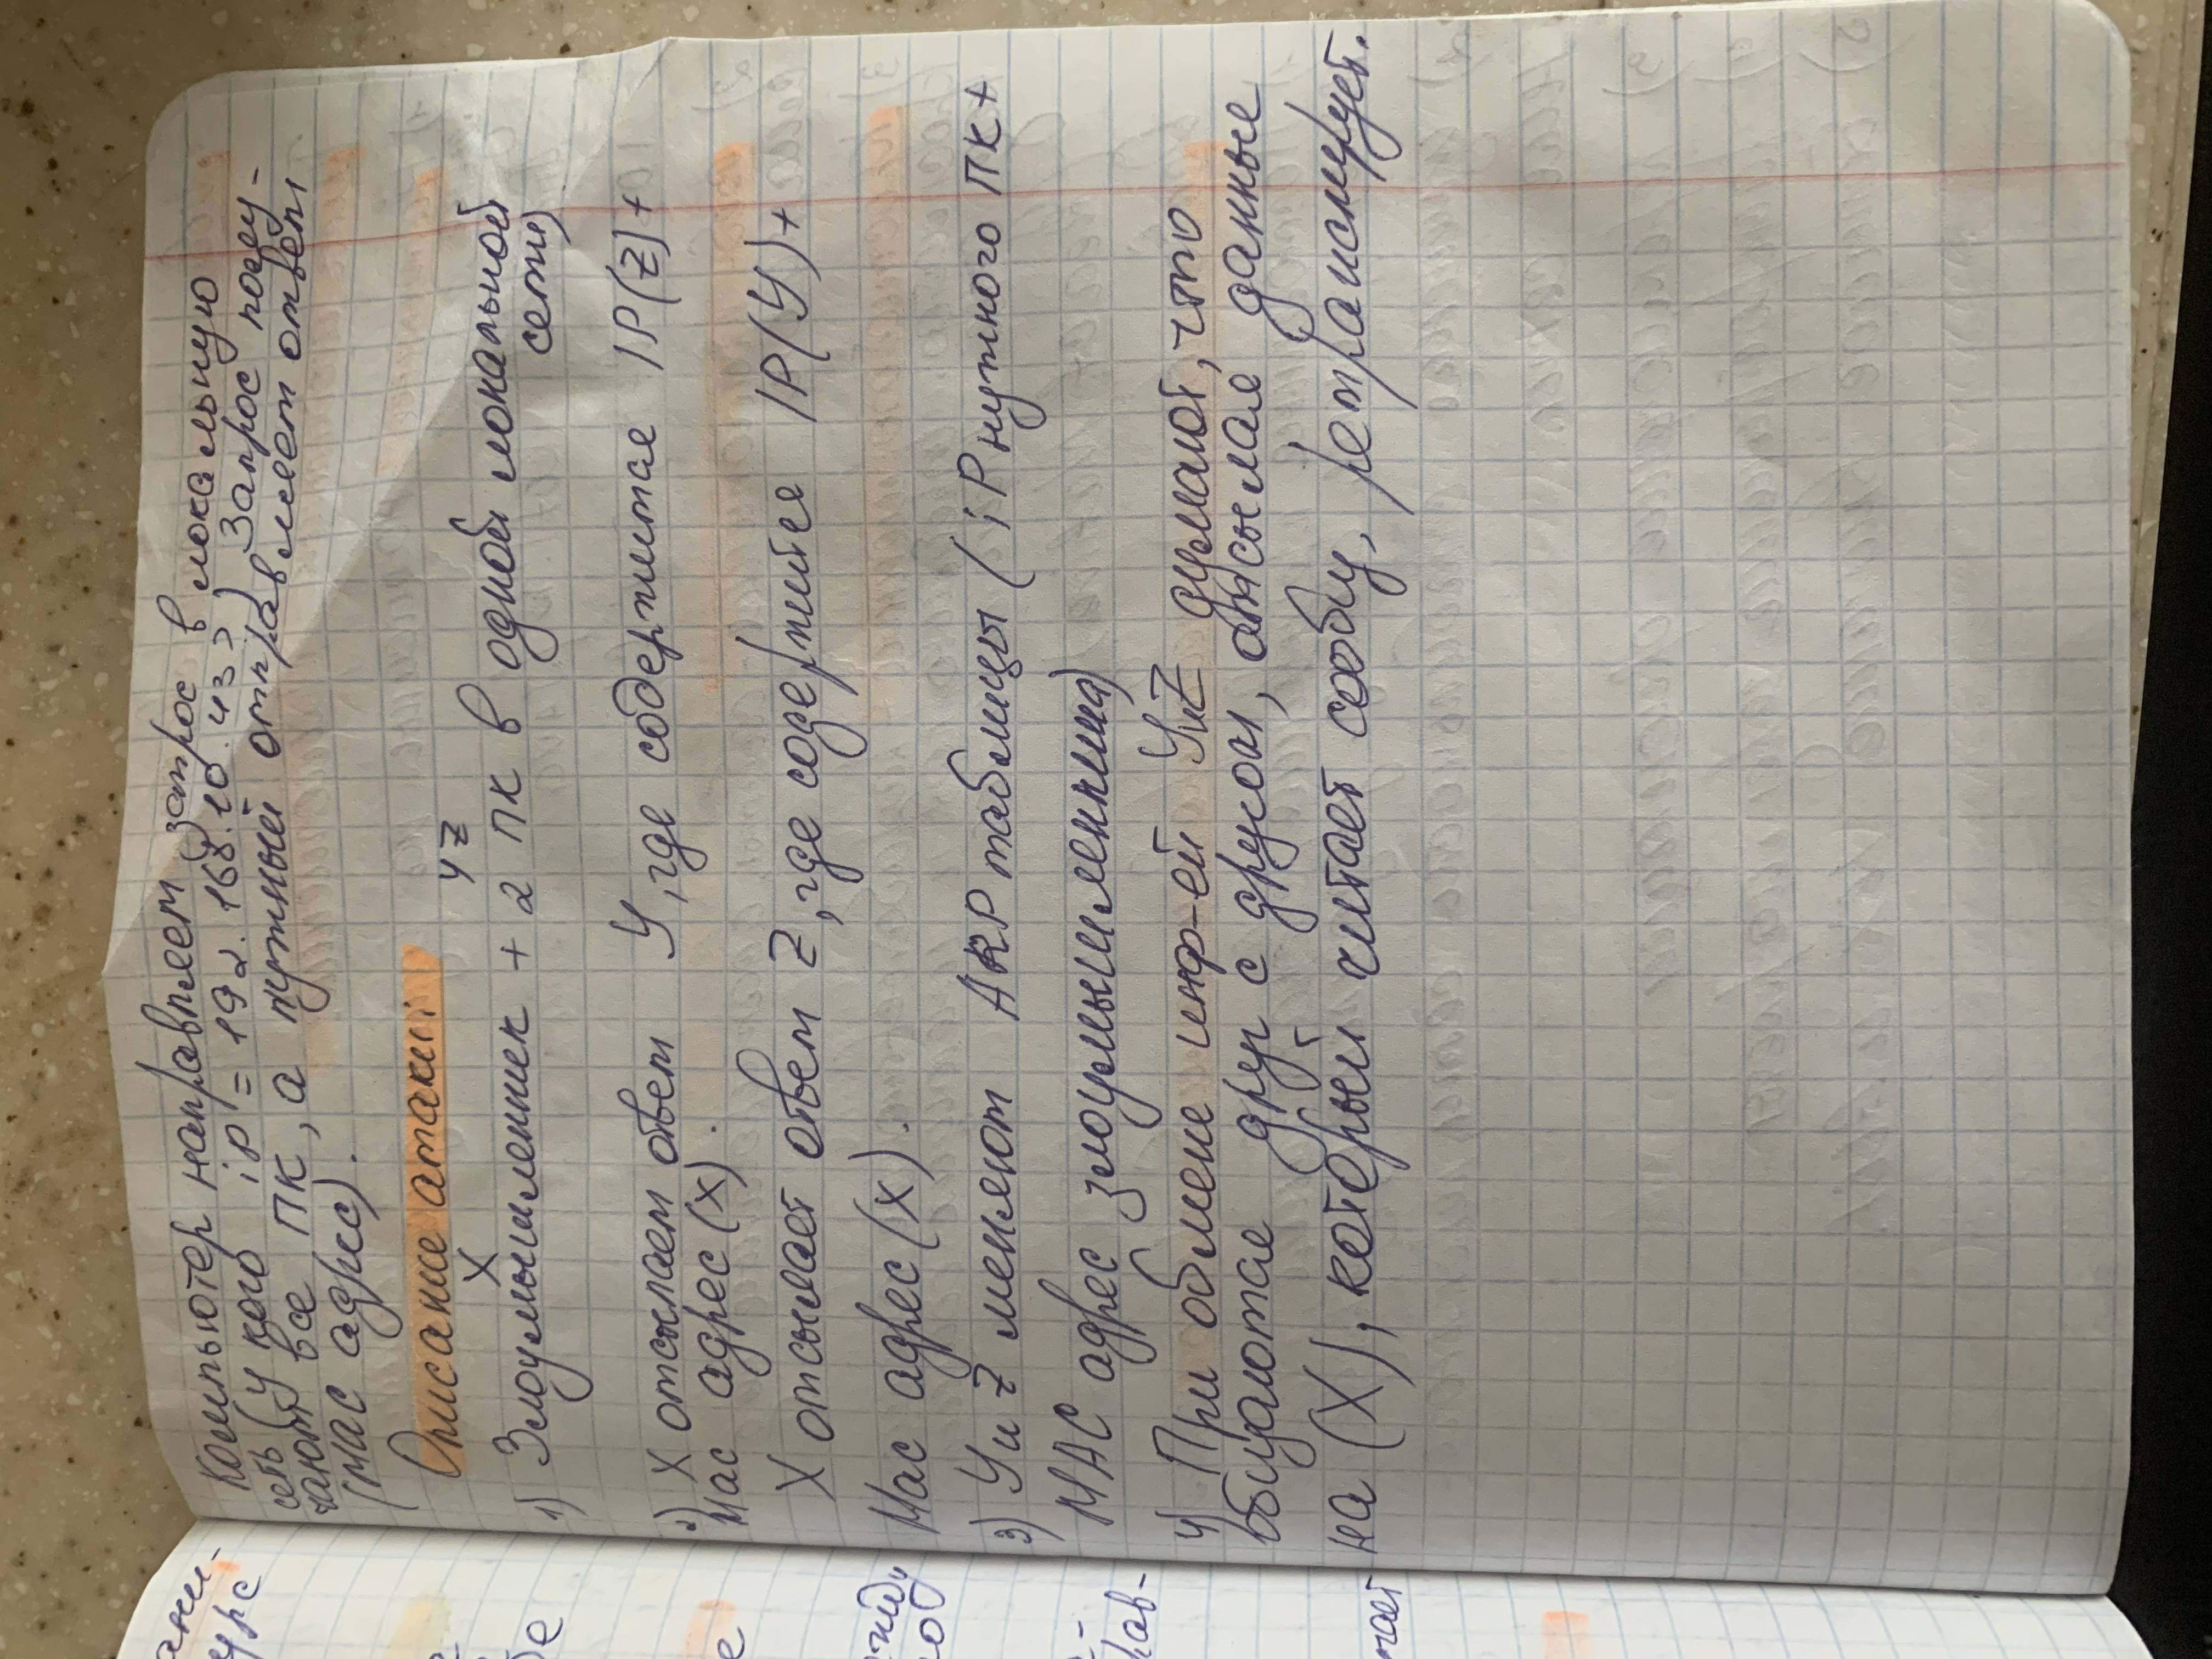 ани-
урс
Компьютер направляет запрос в локальную
сеть (у кого iP = 192.168.10.43?) Запрос полу-
чают все ПК, а нужный отправляет ответ
(MAC адрес).
Описание атаки:
X YZ
1) Злоумышленник + 2 ПК в одной локальной
сети)
2) X отсылает ответ Y, где содержится IP(Z)+
Mac адрес (X).
X отсылает ответ Z, где содержится IP(Y)+
Mac адрес (X).
3) Y и Z меняют ARP таблицы (iP нужного ПК+
MAC адрес злоумышленника)
4) При обмене инф-ей Y и Z думают, что
общаются друг с другом, отсылая данные
на (X), который читает сообщ, ретранслирует.